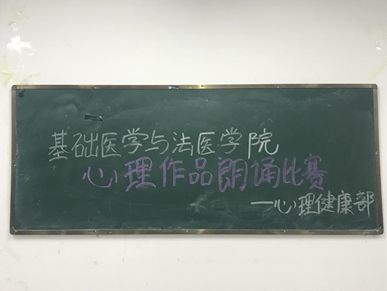 基础医学与法医学院
心理作品朗诵比赛
—心理健康部